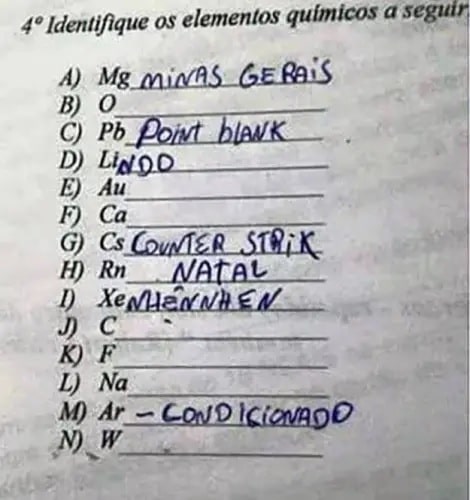 4º Identifique os elementos químicos a seguir
A) Mg MINAS GERAIS
B) O
C) Pb POINT blANK
D) LiNDO
E) Au
F) Ca
G) Cs COUNTER STRIK
H) Rn NATAL
I) XeNHENNHEN
J) C
K) F
L) Na
M) Ar - CONDICIONADO
N) W